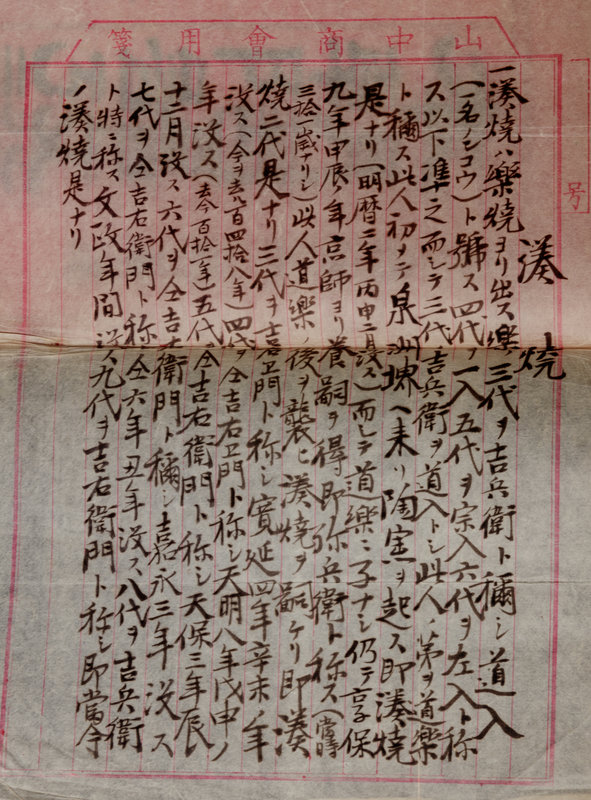 山中商會用箋
号
湊燒
一湊燒ハ樂燒ヨリ出ス樂三代ヲ吉兵衛ト稱シ道入
(一名ノンコウ)ト號ス四代ヲ一入五代ヲ宗入六代ヲ左入ト称
ス以下準之而シテ三代吉兵衛ヲ道入トシ此人ノ弟ヲ道樂
ト稱ス此人初メテ泉州堺ヘ来リ陶窯ヲ起ス即湊燒
是ナリ(明暦二年丙申二月没ス)而シテ道樂ニ子ナシ仍テ享保
九年甲辰ノ年京師ヨリ養嗣ヲ得即弥兵衛ト称ス(當時
三拾歳ナリシ)此人道樂ノ後ヲ襲ヒ湊燒ヲ嗣ケリ即湊
燒二代是ナリ三代ヲ吉右ヱ門ト称シ寛延四年辛未ノ年
没ス(今ヲ去ル百四拾八年)四代ヲ仝吉右ヱ門ト称シ天明八年戊申ノ
年没ス(去今百拾一年)五代ヲ仝吉右衛門ト称シ天保三年辰
十二月没ス六代ヲ仝吉右衛門ト稱シ嘉永三年没ス
七代ヲ仝吉右衛門ト称シ仝六年丑年没ス八代ヲ吉兵衛
ト特ニ称ス文政年間没ス九代ヲ吉右衛門ト称シ即當今
ノ湊燒是ナリ